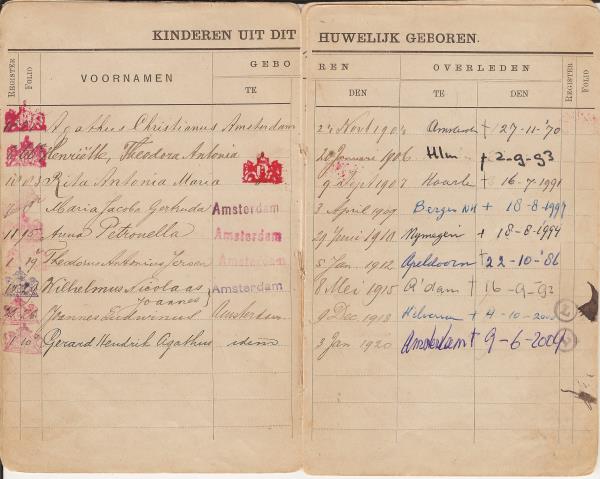 KINDEREN UIT DIT HUWELIJK GEBOREN.
REGISTER FOLIO VOORNAMEN GEBOREN OVERLEDEN REGISTER FOLIO
TE DEN TE DEN
Agathus Christianus Amsterdam 190 + 27-11-'70
Henriëtte, Theodora Antonia 20 Januarie 1906 Hlm + 2-9-93
Rita Antonia Maria 9 Sept 1907 Haarle + 16-7-1991
Maria Jacoba Gertruda Amsterdam 3 April 1909 Bergen NH + 18-8-1997
11 15 Anna Petronella Amsterdam 29 Juni 1910 Nymegen + 18-8-1994
19 Theodorus Antonius Amsterdam 5 Jan. 1912 Apeldoorn + 22-10-'86
Wilhelmus Nicolaas Amsterdam 8 Mei 1915 A'dam + 16-9-93
Joannes
Ludwinus Amsterdam 9 Dec. 1918 Hilversum + 4-10-
Gerard Hendrik Agathus idem 3 Jan 1920 Amsterdam + 9-6-2009